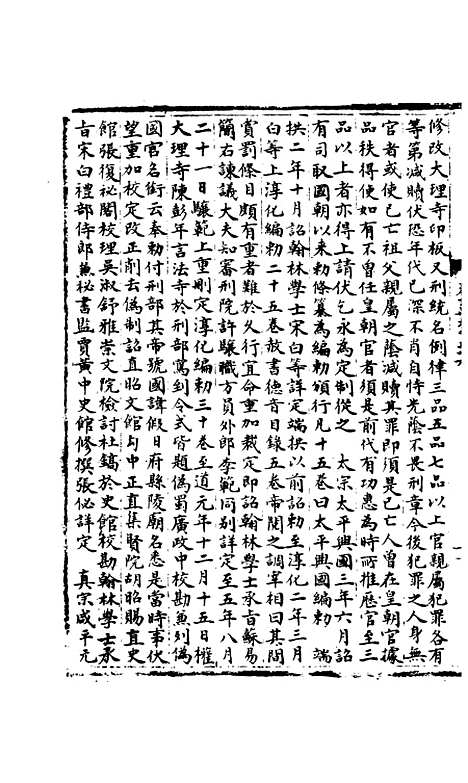 修改大理寺印板又刑統名例律三品五品七品以上官親屬犯罪各有
等第減贖伏恐年代已深不肖自恃先廕不畏刑章今後犯罪之人身無
官者或使已亡祖父親屬之廕減贖其罪即須是已亡人曾在皇朝官據
品秩得使如有不曾任皇朝官者須是前代有功惠為時所推歷官至三
品以上者亦得上請伏乞永為定制從之　太宗太平興國三年六月詔
有司取國朝以來勅條纂為編勅頒行凡十五卷曰太平興國編勅　端
拱二年十月詔翰林學士宋白等詳定端拱以前詔勅至淳化二年三月
白等上淳化編勅二十五卷赦書德音目錄五卷帝閱之謂宰相曰其間
賞罰條目頗有重者難於久行宜命重加裁定即詔翰林學士承旨蘇易
簡右諫議大夫知審刑院許驤職方員外郎李範同別詳定至五年八月
二十一日驤範上重則定淳化編勅三十卷至道元年十二月十五日權
大理寺陳彭年言法寺於刑部寫到令式皆題偽蜀廣政中校勘兼列偽
國官名銜云奉勅付刑部其帝號國諱假日府縣陵廟名悉是當時事伏
望重加校定改正削去偽制詔直昭文館勾中正直集賢院胡昭賜直史
館張復祕閣校理吳淑舒雅崇文院檢討杜鎬於史館校勘翰林學士承
旨宋白禮部侍郎兼秘書監賈黃中史館修撰張佖詳定　真宗咸平元